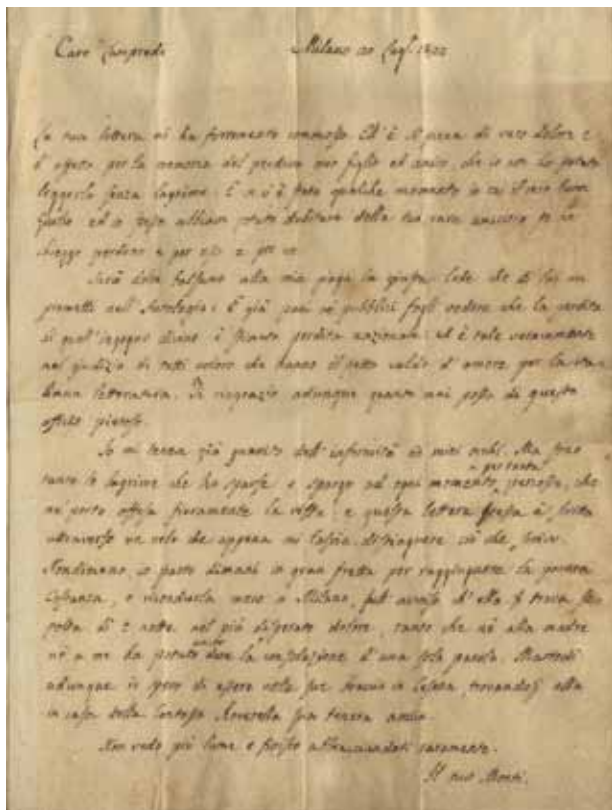 Caro Lampredi Milano 20 Lugl. 1822
La tua lettera mi ha fortemente commosso. Ed è sì piena di vero dolore e
d' affetto per la memoria del perduto mio figlio ed amico, che io non ho potuto
leggerla senza lagrime. E se v'è stato qualche momento in cui il mio buon
Giulio ed io abbiam potuto dubitare della tua amicizia te ne
chieggo perdono e per lui e per me.
Sarà dolce balsamo alla mia piaga la giusta lode che di lui mi
prometti nell' Antologia: e già puoi ne' pubblici fogli vedere che la perdita
di quell' ingegno divino è perdita nazionale: ed è tale veramente
nel giudizio di tutti coloro che hanno il petto caldo d' amore per la ita-
liana letteratura. Ti ringrazio adunque quanto mai posso di questo
offizio pietoso.
Io mi tenea già guarito dell' infermità de' miei occhi. Ma
tante le lagrime che ho sparse e spargo ad ogni momento per questa, che
ne porto offesa fieramente la vista, e questa lettera è scritta
attraverso un velo che appena mi lascia distinguere ciò che scrivo.
Nondimeno, io parto dimani in gran fretta per raggiungere la povera
Costanza, e ricondurla meco a Milano, ch' ella si trova se-
polta dì e notte nel più disperato dolore, tanto che nè alla madre
nè a me ha potuto la consolazione d' una sola parola. Martedì
adunque io spero di essere nelle sue braccia in Cesena, trovandosi ella
in casa della Contessa Roverella sua tenera amica.
Non vedo più lume e finisco abbracciandoti caramente.
Il tuo Monti.